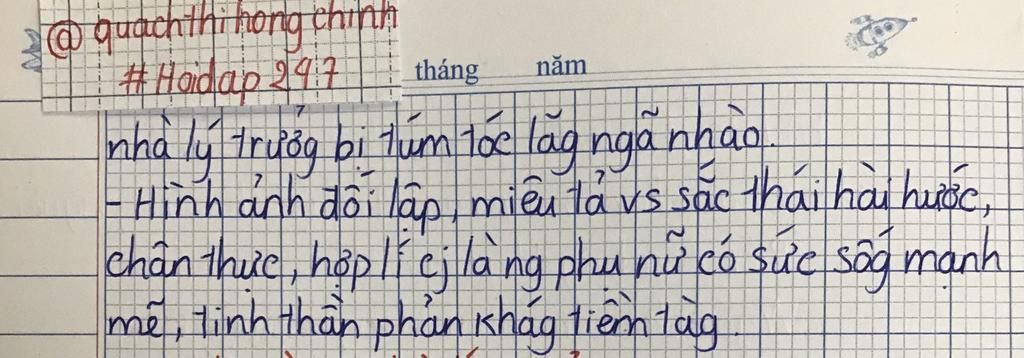 @ quachthihongchinh
#Hoidap247
tháng năm
nhà lý trưởg bị túm tóc lẵg ngã nhào.
- Hình ảnh đối lập, miêu tả vs sắc thái hài hước,
chân thực, hợp lí cj là ng phụ nữ có sức sốg mạnh
mẽ, tinh thần phản khág tiềm tàg.